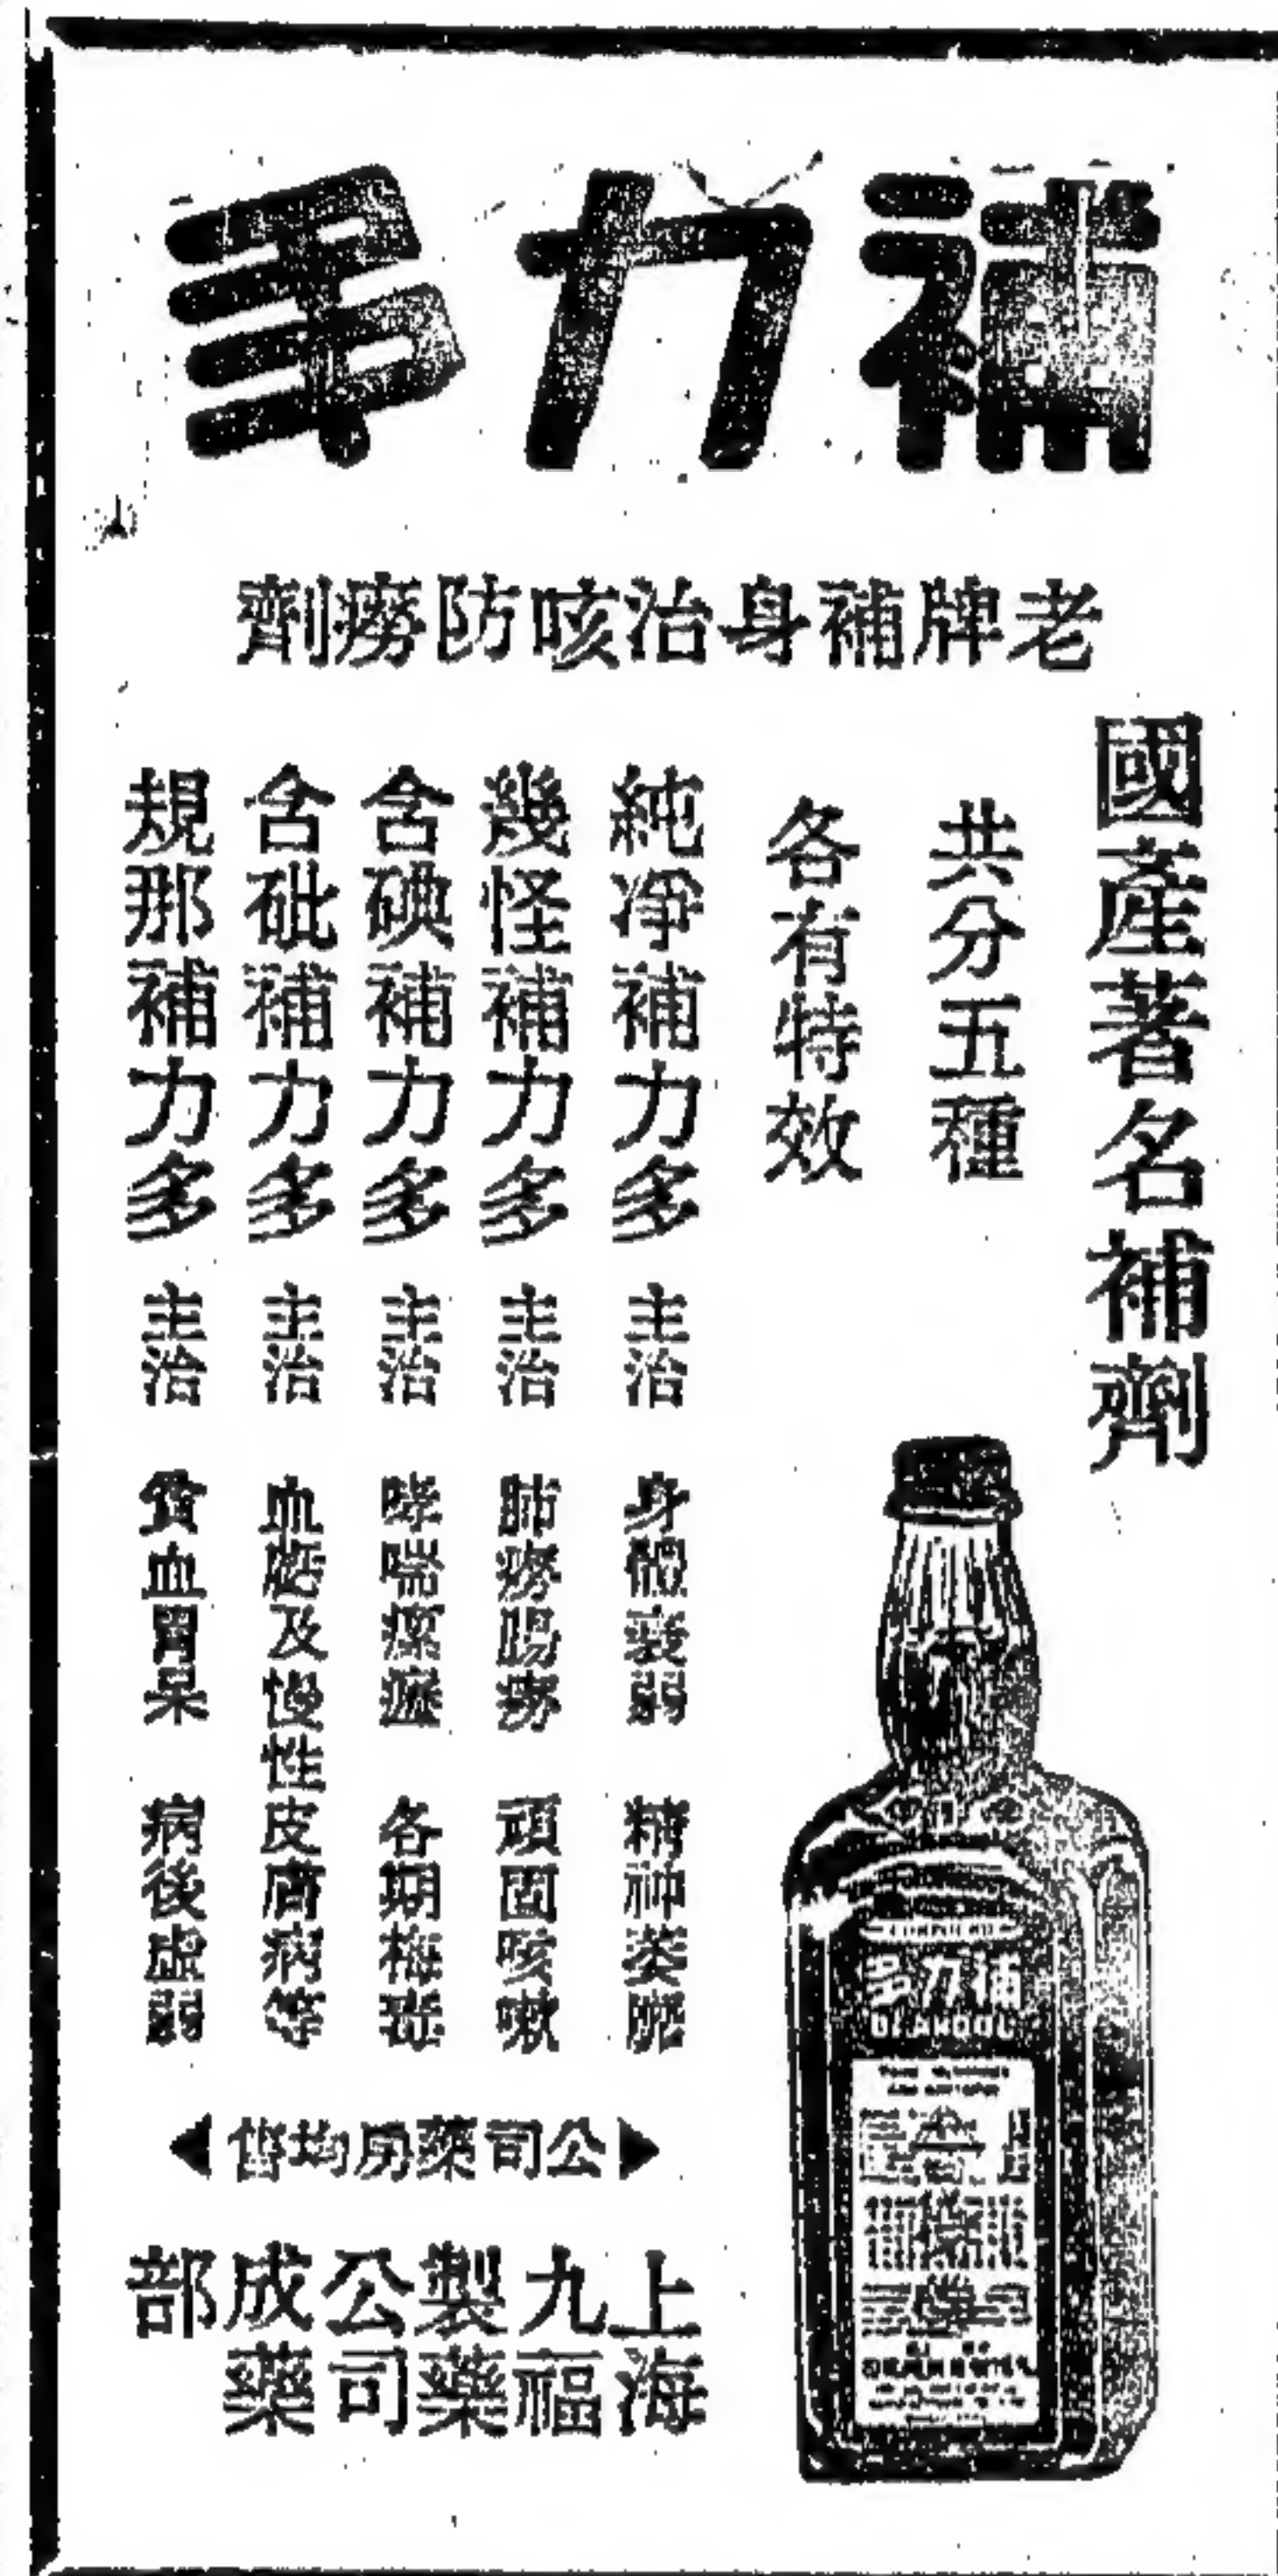 補力多
老牌補身治咳防癆劑
國產著名補劑
共分五種
各有特效
純淨補力多 主治 身體衰弱 精神萎靡
幾怪補力多 主治 肺癆腸癆 頑固咳嗽
含碘補力多 主治 哮喘瘰癧 各期梅毒
含砒補力多 主治 血虧及慢性皮膚病等
規那補力多 主治 貧血胃呆 病後虛弱
公司藥房均售
上海九福製藥公司成藥部
補力多